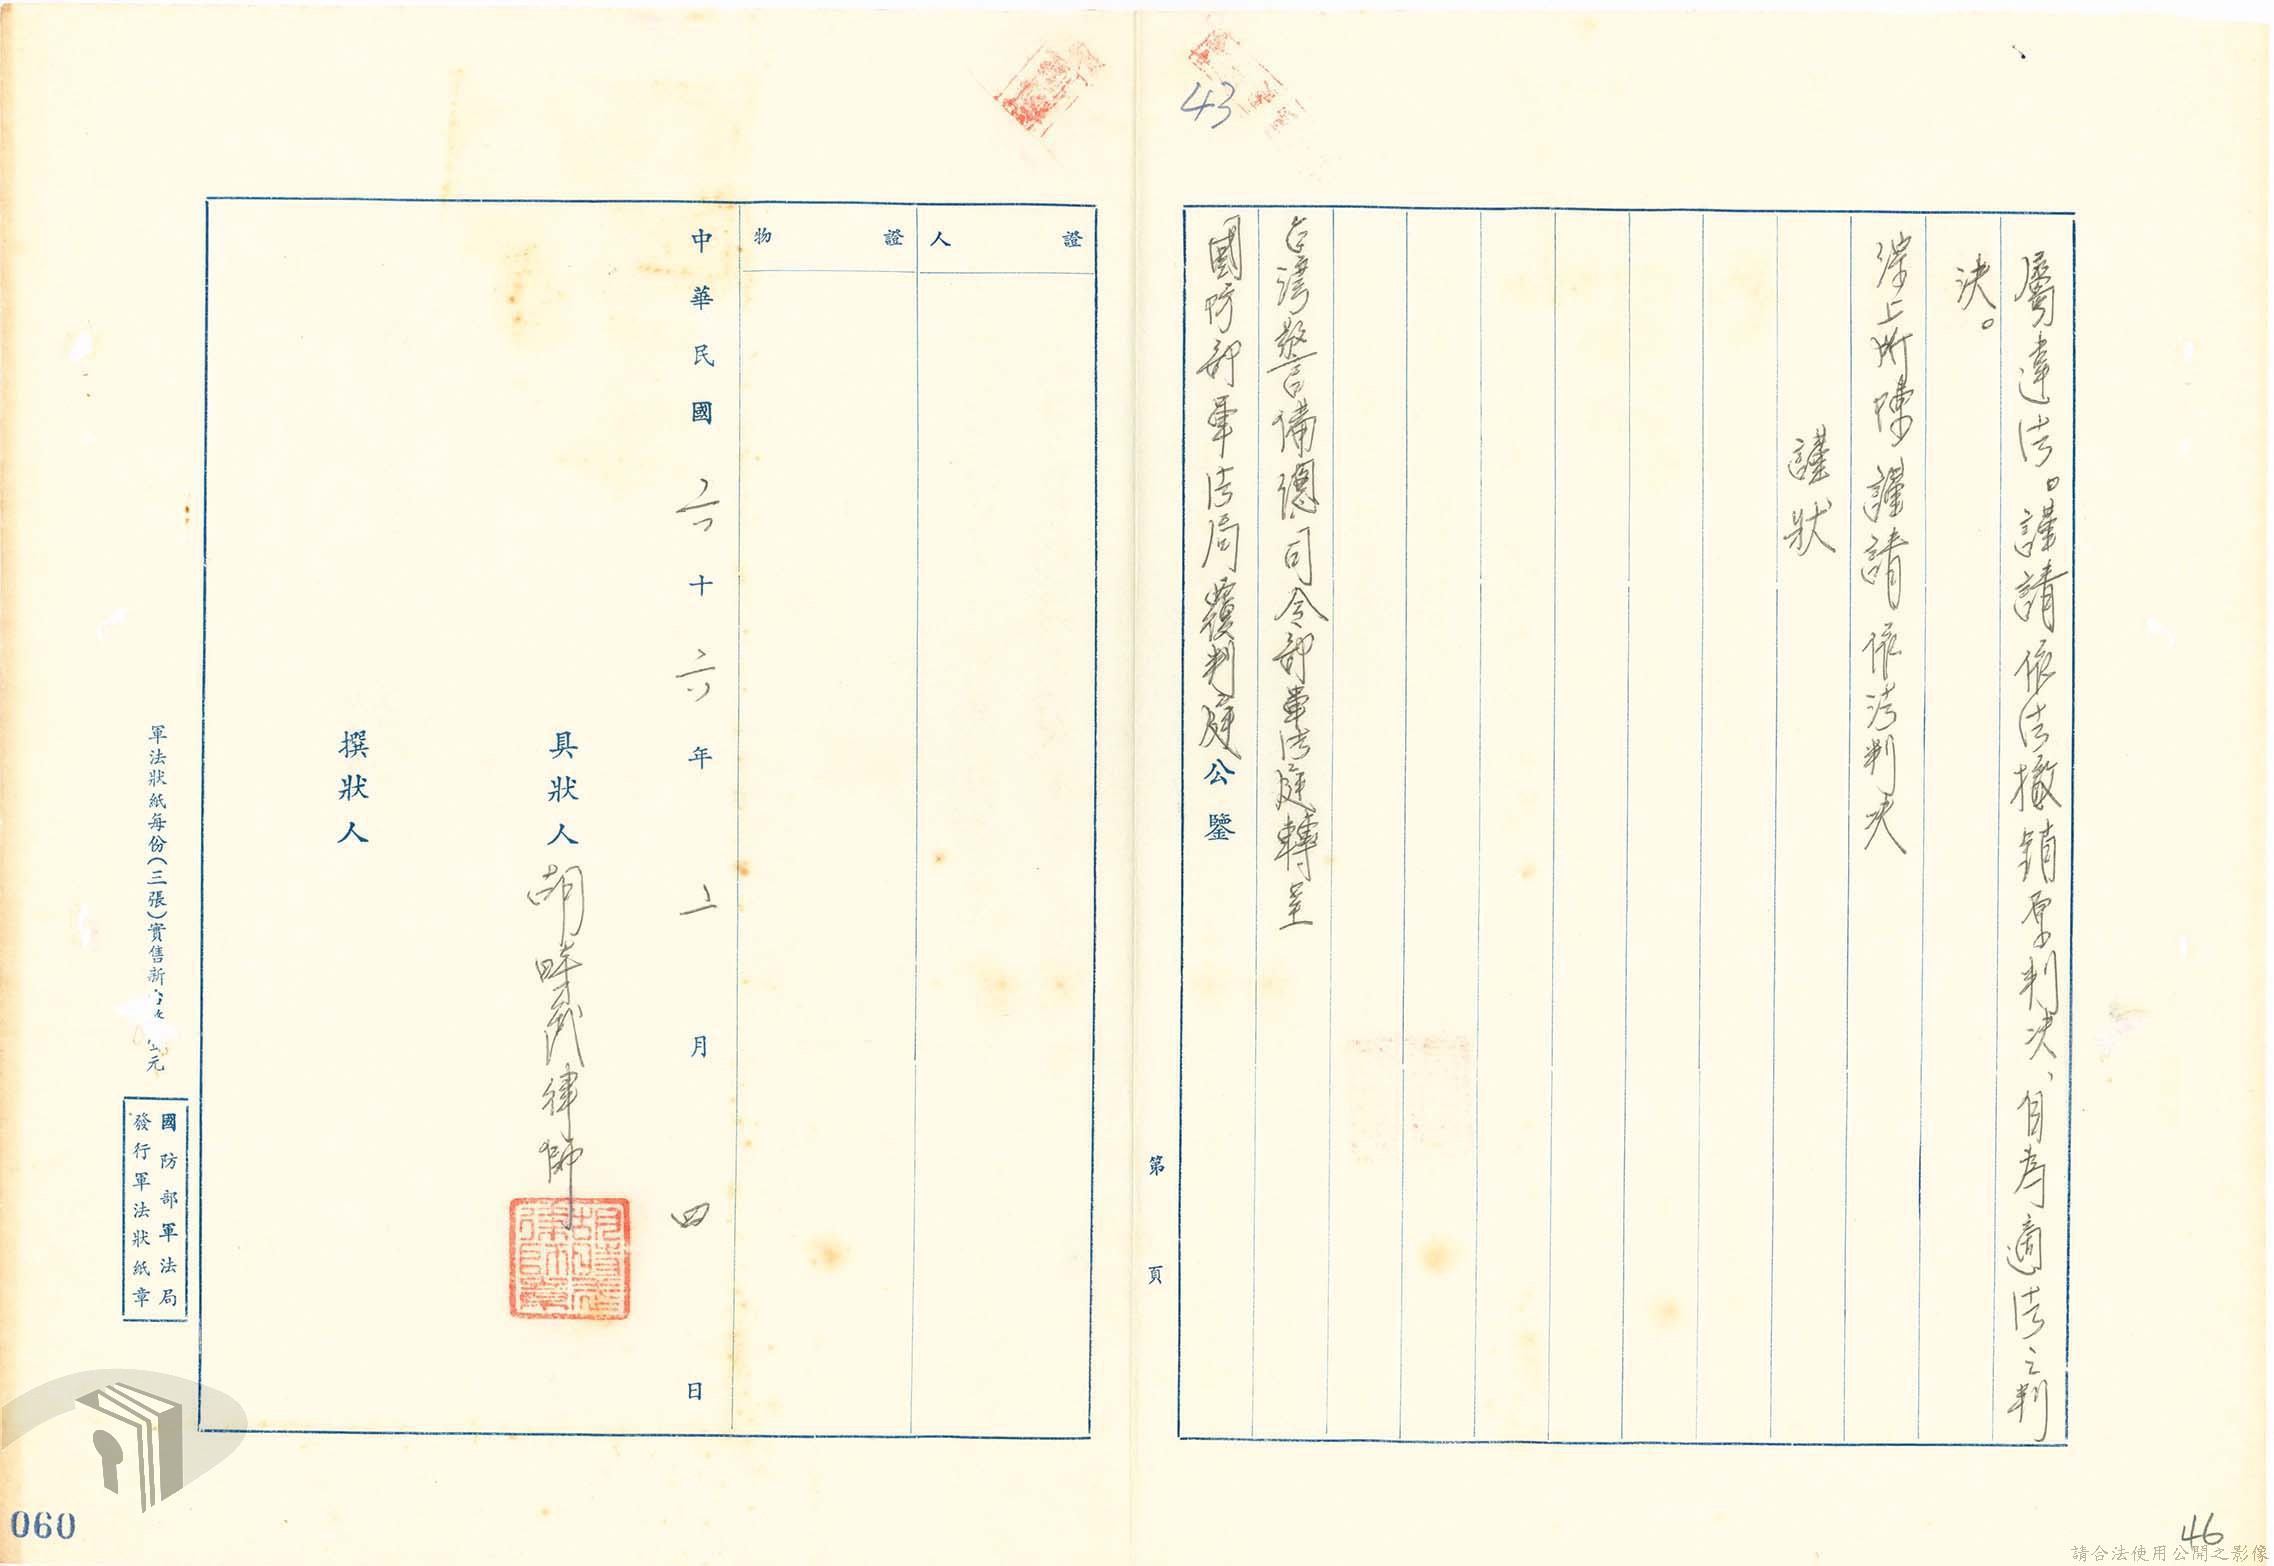 43
屬違法。謹請依法撤銷原判決、自為適法之判
決。
綜上所陳謹請依法判決
謹狀
台灣警備總司令部軍法庭轉呈
國防部軍法局覆判庭公鑒
第 頁
證人
證物
中華民國六十六年 月四日
具狀人 律師
撰狀人
軍法狀紙每份(三張)實售新 元
國防部軍法局
發行軍法狀紙章
060
46
請合法使用公開之影像